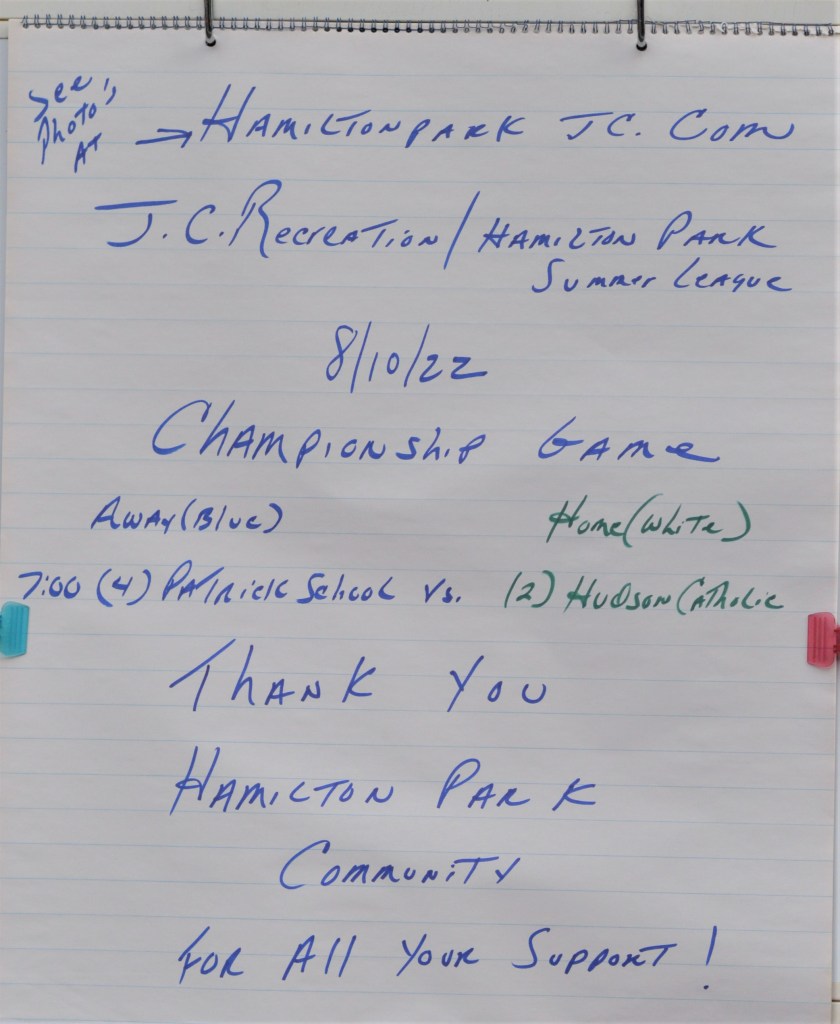 See
Photo's
At → Hamiltonpark JC. Com
J.C. Recreation/Hamilton Park
Summer League
8/10/22
Championship Game
Away (Blue) Home (White)
7:00 (4) Patrick School vs. (2) Hudson Catholic
Thank You
Hamilton Park
Community
For All Your Support!